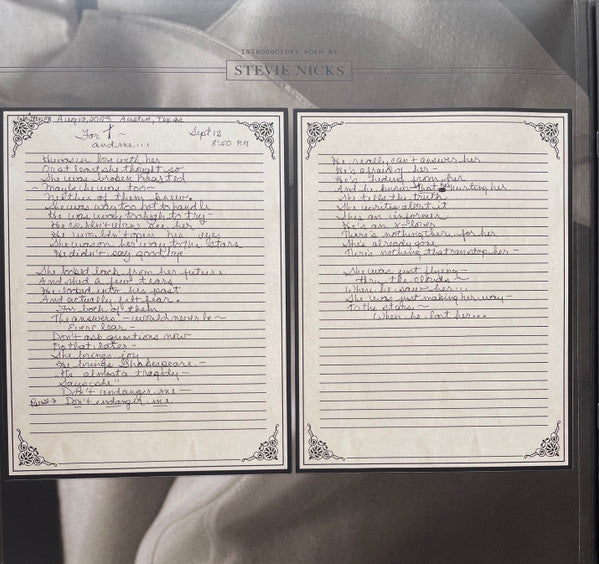 INTRODUCTORY POEM BY
STEVIE NICKS
Written Aug 13, 2023 Austin, Texas
For T ~ Sept 13
and me... 8:50 PM
He was in love with her
Or at least she thought so
She was broken hearted
~ Maybe he was too ~
Neither of them knew
She was way too hot to handle
He was way too high to try -
He couldn't even see her
He wouldn't open his eyes
She was on her way to the stars
He didn't say goodbye
She looked back from her future
And shed a few tears
He looked into his past
And actually felt fear.
For both of them
The answers - would never be ~
Ever clear -
Don't ask questions now
Do that later -
She brings joy
He brings Shakespeare -
It's almost a tragedy -
Says she "
Don't endanger me -
Don't endanger me.
He really can't answer her
He's afraid of her -
He's hiding from her
And he knows that he's hurting her
She tells the truth
She writes about it
She's an informer
He's an x-lover
There's nothing there for her
She's already gone
There's nothing that can stop her -
She was just flying -
thru the clouds -
When he saw her...
She was just making her way -
to the stars ~
When he lost her...